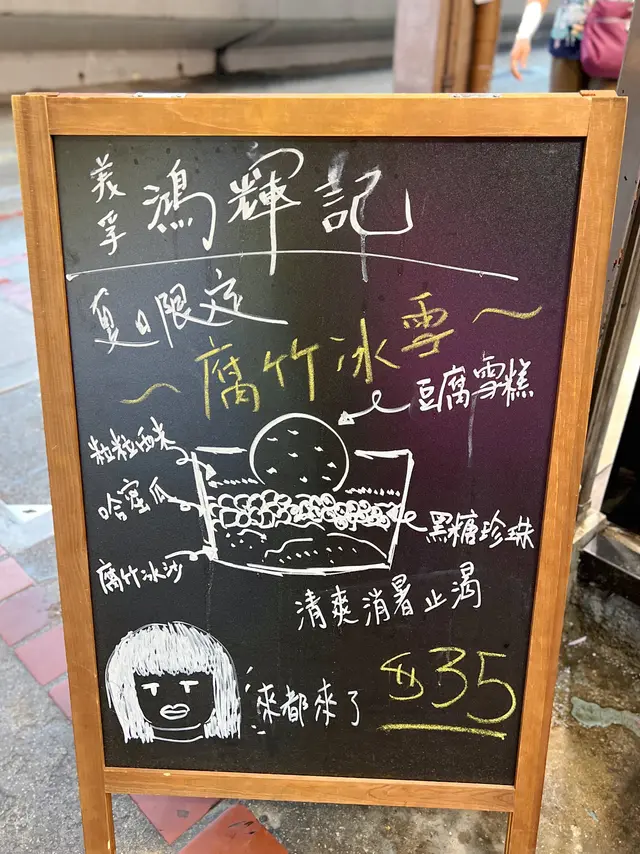 美孚 鴻輝記
夏日限定
~腐竹冰雪~
豆腐雪糕
粒粒西米
哈蜜瓜
黑糖珍珠
腐竹冰沙
清爽消暑止渴
來都來了
$35